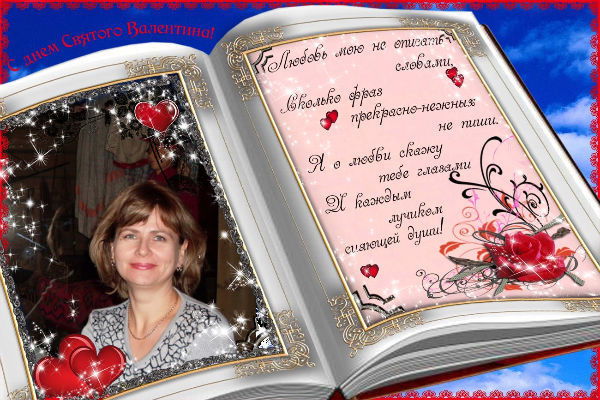 С днем Святого Валентина!
Любовь мою не описать
словами,
Сколько фраз
прекрасно-нежных
не пиши.
Я о любви скажу
тебе глазами
И каждым
лучиком
сияющей души!